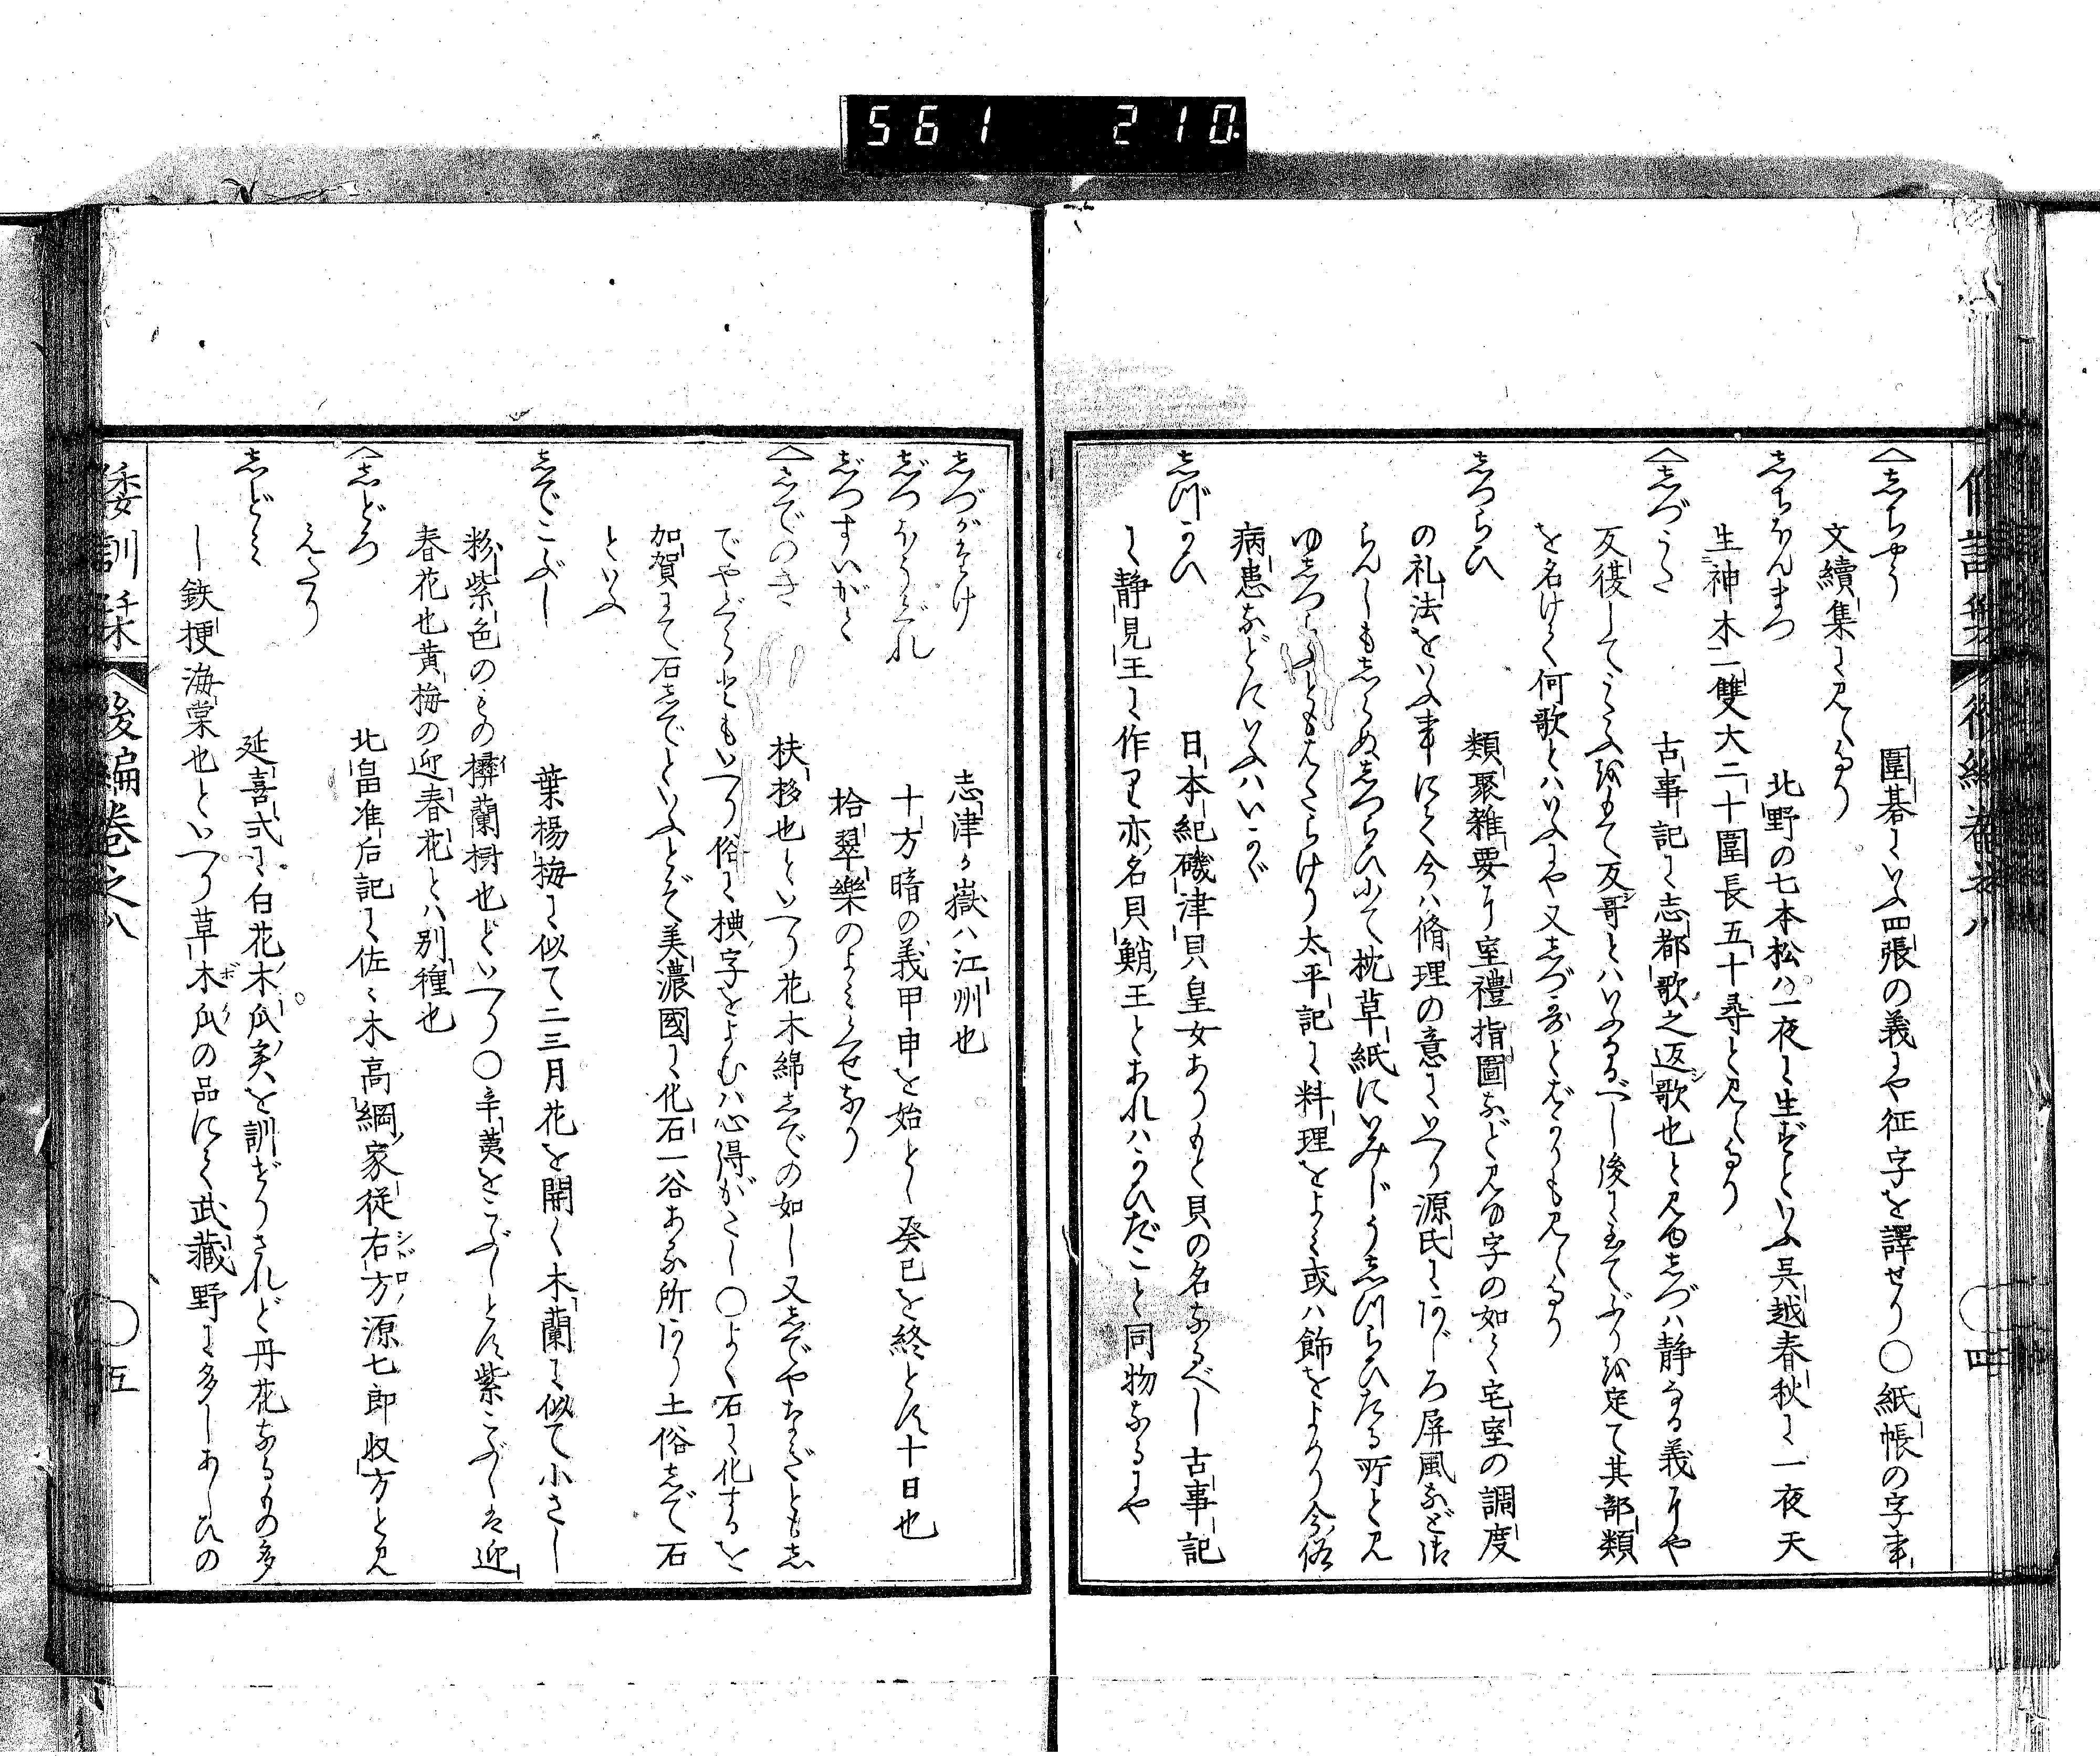 561 210
へしちやう 圍碁にいふ四張の義にや征字を譯せり〇紙帳の字事
文續集に見えたり
しちほんまつ 北野の七本松ハ一夜に生ずといふ呉越春秋に一夜天
生神木一雙大二十圍長五十尋と見えたり
へしづうた 古事記に志都歌之返歌也と見ゆしづハ静なる義にや
反復してうたふをもて反哥とハいふなるべし後にうたひてぶりを定て其部類
を名けて何歌とハいふにや又しづ哥とばかりも見えたり
しつらひ 類聚雜要に室禮指圖など見ゆ字の如く宅室の調度
の礼法をいふ事にて今ハ脩理の意にいへり源氏にあじろ屏風など御
らんしもしらぬしつらひにて枕草紙にいみじうしつらひたる所と見
ゆしつらふともはたらけり太平記に料理をよミ或ハ飾をよめり今俗
病患などにいふハいかゞ
しづかひ 日本紀磯津貝ハ皇女ありもと貝の名なるべし古事記
に静見王に作りて亦名貝鮹王とあれハかひだこと同物なるにや
しづがたけ 志津ヶ嶽ハ江州也
じつほうぐれ 十方暗の義甲申を始とし癸巳を終とす十日也
じつすいがく 拾翠樂のよミくせなり
へしでのき 扶栘也といへり花木綿しでの如し又しでやなぎともし
でやざくらともいへり俗に椣字をよむハ心得がたし〇よく石に化するを
加賀にて石しでといふとぞ美濃國に化石一谷ある所あり土俗しで石
といふ
しでこぶし 葉楊梅に似て二三月花を開く木蘭に似て小さし
粉紫色のもの㯠蘭樹也といへり〇辛荑をこぶしとす紫こぶしは迎
春花也黄梅の迎春花とハ別種也
へしどろ 北畠准后記に佐々木高綱家従右方源七郎収方と見
えたり
しどミ 延喜式に白花木瓜実を訓ぜりされど丹花なるもの多
し鉄梗海棠也といへり草木瓜の品にて武藏野に多しあしびの
倭訓栞 後編巻之八 〇五